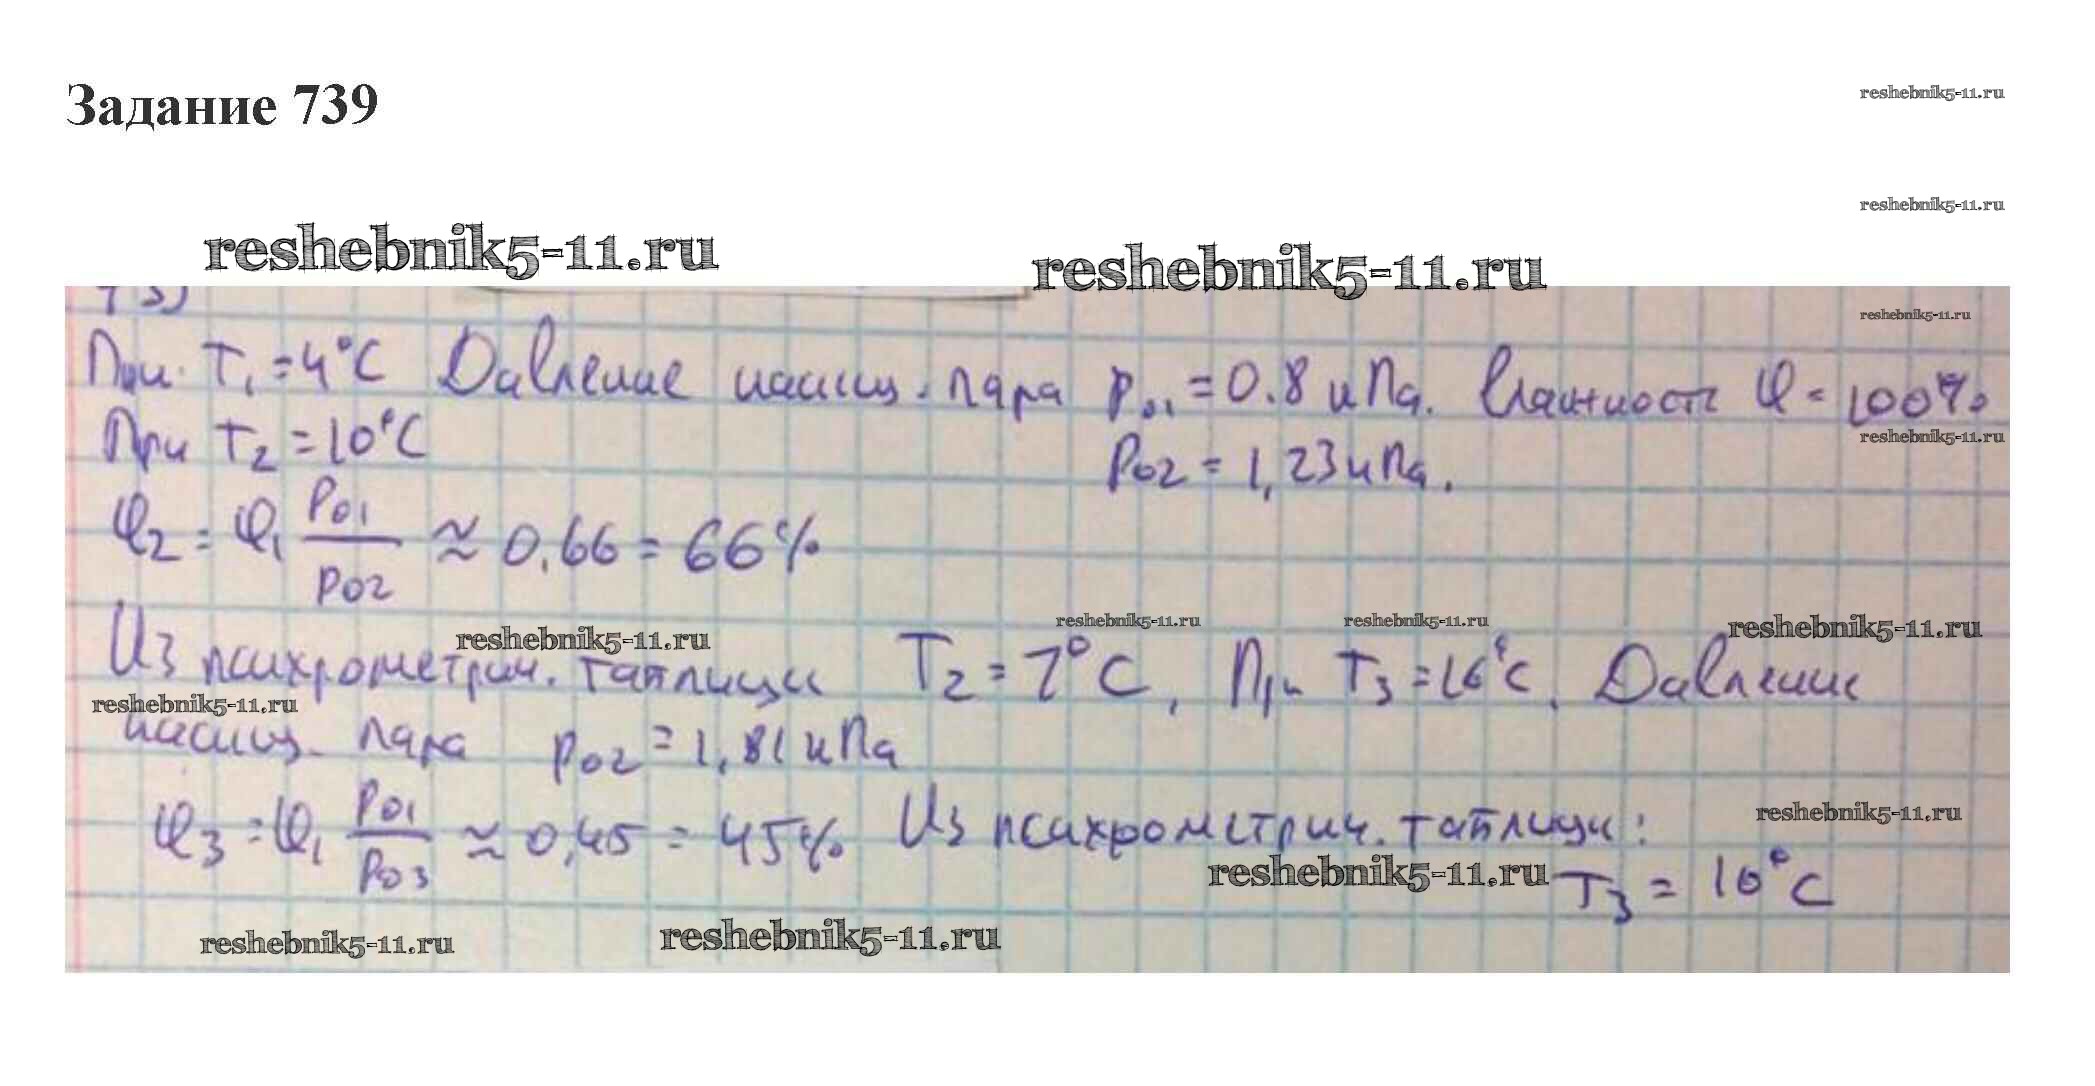 Задание 739
reshebnik5-11.ru
reshebnik5-11.ru
reshebnik5-11.ru
reshebnik5-11.ru
reshebnik5-11.ru
При T₁=4°C Давление насыщ. пара P₀₁=0.8 кПа. Влажность φ=100%
При T₂=10°C
reshebnik5-11.ru
P₀₂=1,23 кПа.
φ₂=φ₁ P₀₁/P₀₂ ≈ 0,66 = 66%
reshebnik5-11.ru
reshebnik5-11.ru
reshebnik5-11.ru
reshebnik5-11.ru
Из психрометрич. таблицы T₂=7°C, При T₃=16°C. Давление
reshebnik5-11.ru
насыщ. пара P₀₂=1,81 кПа
φ₃=φ₁ P₀₁/P₀₃ ≈ 0,45 = 45% Из психрометрич. таблицы:
reshebnik5-11.ru
reshebnik5-11.ru
T₃=10°C
reshebnik5-11.ru
reshebnik5-11.ru